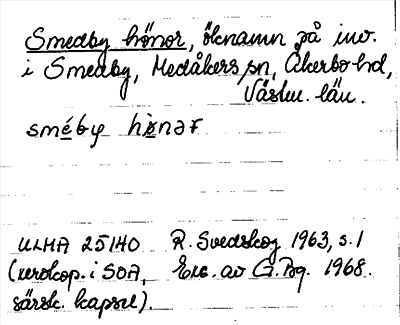 Smedby hönor, öknamn på inv.
i Smedby, Medåkers sn, Åkerbo hd,
Västm. län.
sméby hö̀nar
ULMA 25140 R. Svedskog 1963, s. 1
(xerokop. i SOA, Exc. av G. Bg. 1968.
särsk. kapsel).